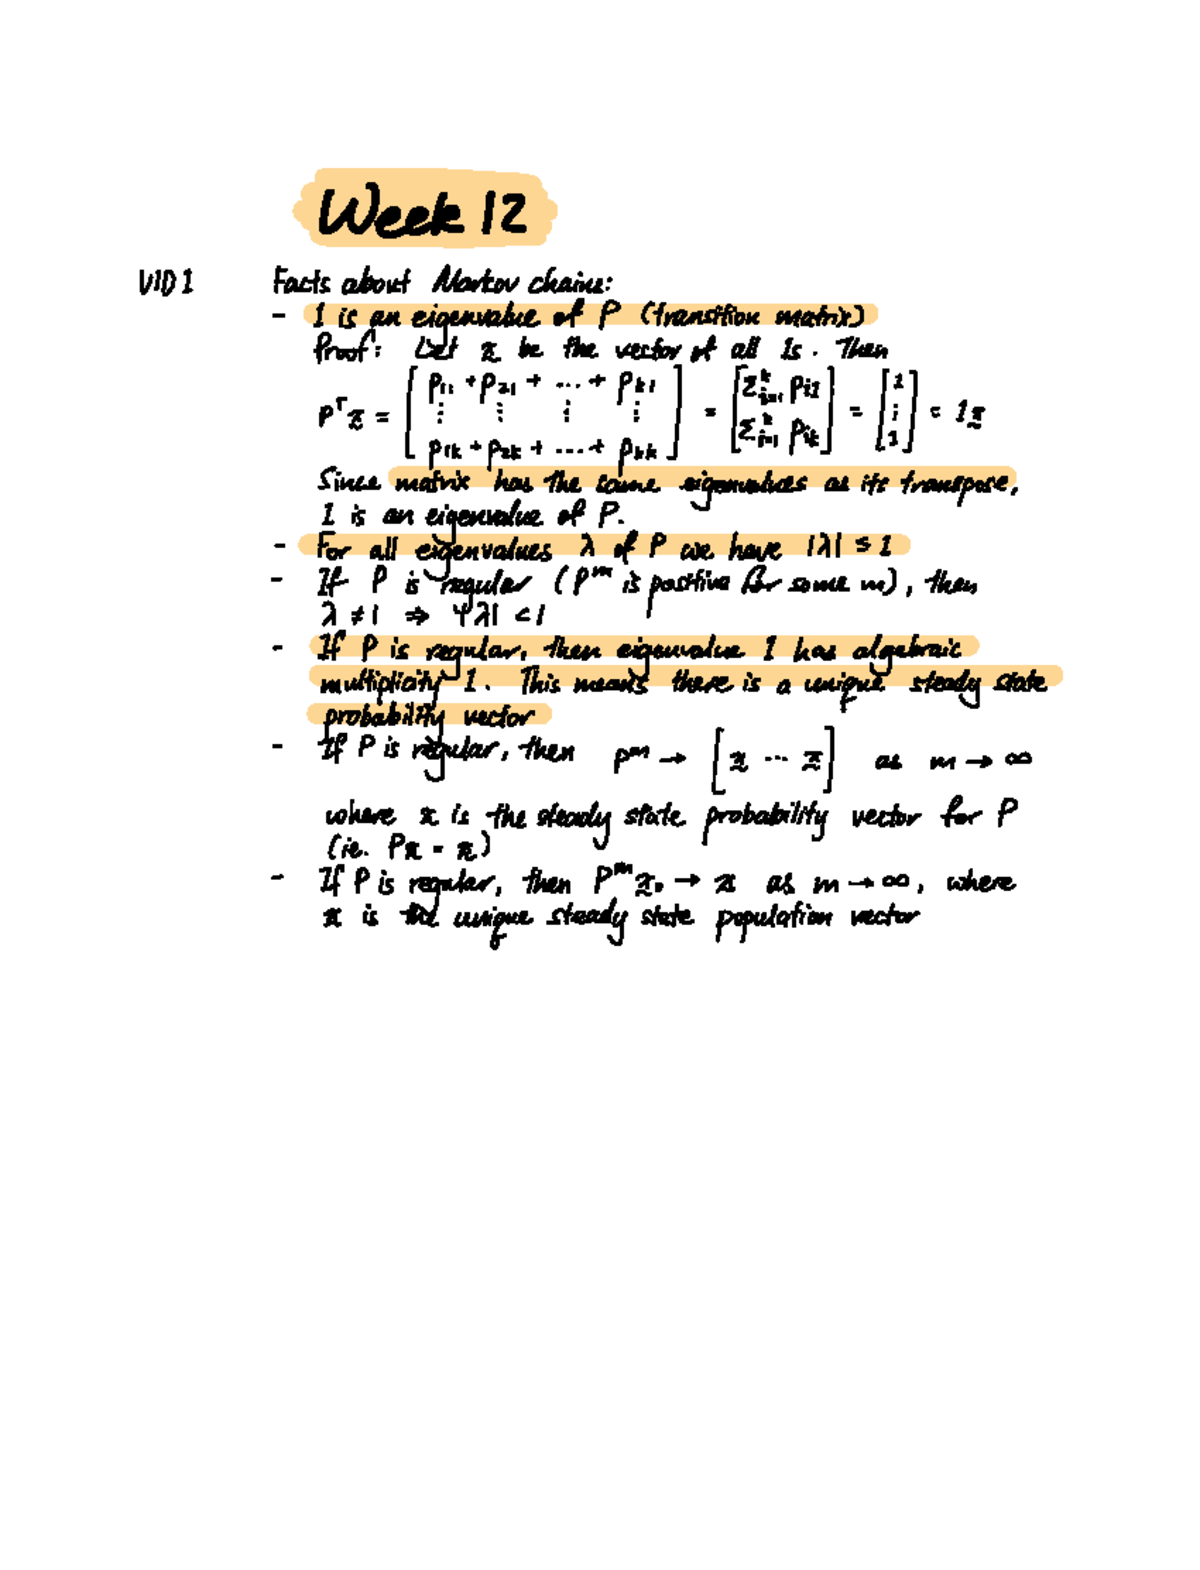 Week 12
VID 1 Facts about Markov chains:
- 1 is an eigenvalue of P (transition matrix)
Proof: Let x be the vector of all 1s. Then
Pᵀx = [p₁₁ + p₂₁ + ... + pₖ₁ ⋮ ⋮ ⋮ ⋮ p₁ₖ + p₂ₖ + ... + pₖₖ] = [Σᵏᵢ₌₁ pᵢ₁ Σᵏᵢ₌₁ pᵢₖ] = [1 ⋮ 1] = 1x
Since matrix has the same eigenvalues as its transpose,
1 is an eigenvalue of P.
- For all eigenvalues λ of P we have |λ| ≤ 1
- If P is regular (Pᵐ is positive for some m), then
λ ≠ 1 ⇒ |λ| < 1
- If P is regular, then eigenvalue 1 has algebraic
multiplicity 1. This means there is a unique steady state
probability vector
- If P is regular, then Pᵐ → [x ... x] as m → ∞
where x is the steady state probability vector for P
(ie. Px = x)
- If P is regular, then Pᵐx₀ → x as m → ∞, where
x is the unique steady state population vector